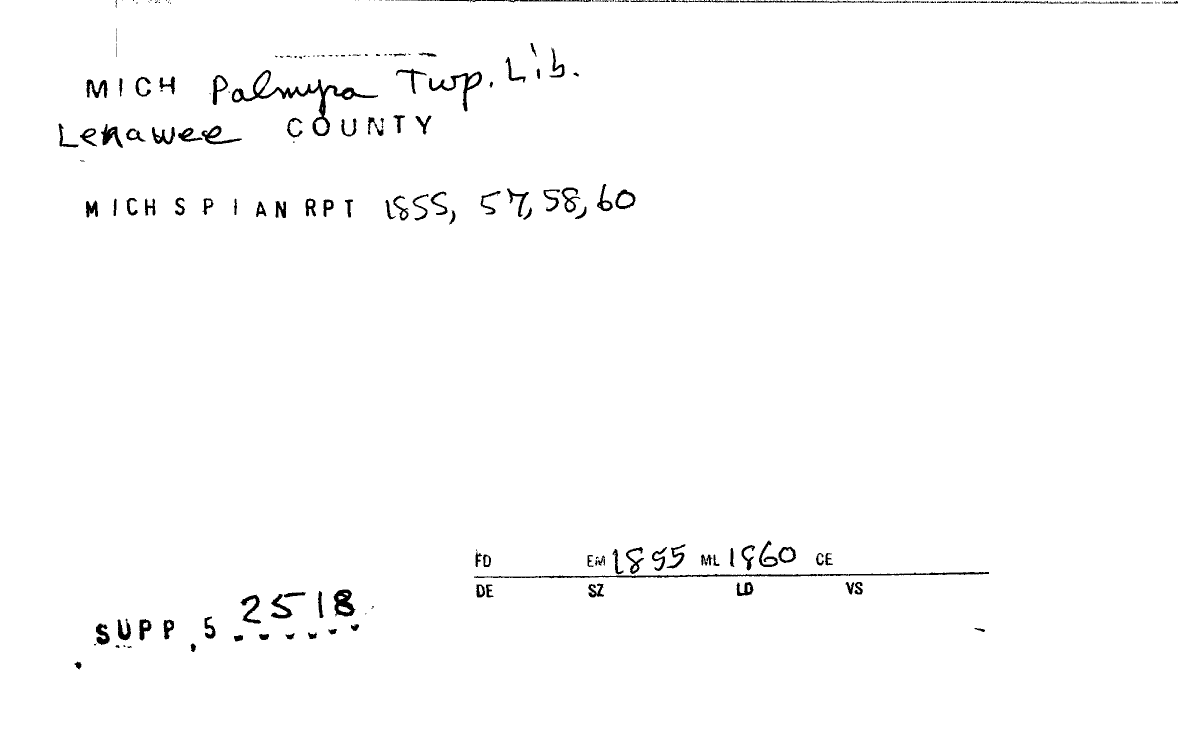 MICH Palmyra Twp. Lib.
Lenawee COUNTY
MICH S P I AN RPT 1855, 57, 58, 60
FD EM 1855 ML 1860 CE
DE SZ LD VS
SUPP, 5 2518